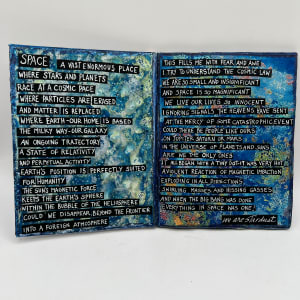 SPACE: A VAST ENORMOUS PLACE
WHERE STARS AND PLANETS
RACE AT A COSMIC PACE
WHERE PARTICLES ARE ERASED
AND MATTER IS REPLACED
WHERE EARTH-OUR HOME IS BASED
THE MILKY WAY-OUR GALAXY
AN ONGOING TRAJECTORY
A STATE OF RELATIVITY
AND PERPETUAL ACTIVITY
EARTH'S POSITION IS PERFECTLY SUITED
FOR HUMANITY
THE SUN'S MAGNETIC FORCE
KEEPS THE EARTH'S SPHERE
WITHIN THE BUBBLE OF THE HELIOSPHERE
COULD WE DISAPPEAR BEYOND THE FRONTIER
INTO A FOREIGN ATMOSPHERE
THIS FILLS ME WITH FEAR AND AWE
I TRY TO UNDERSTAND THE COSMIC LAW
WE ARE SO SMALL AND INSIGNIFICANT
AND SPACE IS SO MAGNIFICENT
WE LIVE OUR LIVES SO INNOCENT
IGNORING SIGNALS THE HEAVENS HAVE SENT
AT THE MERCY OF SOME CATASTROPHIC EVENT
COULD THERE BE PEOPLE LIKE OURS
ON JUPITER SATURN OR MARS
IN THE UNIVERSE OF PLANETS AND SUNS
ARE WE THE ONLY ONES
IT ALL BEGAN WITH A TINY DOT-IT WAS VERY HOT
A VIOLENT REACTION OF MAGNETIC IMPACTION
EXPLODING IN ALL DIRECTIONS
SWIRLING MASSES AND HISSING GASSES
AND WHEN THE BIG BANG WAS DONE
EVERYTHING IN SPACE WAS ONE
We are Stardust